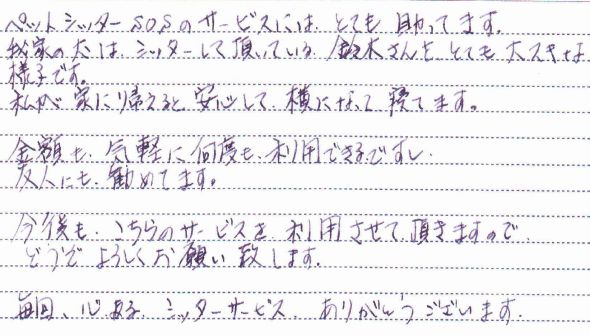 ペットシッターSOSのサービスには、とても助かってます。
我家の犬は、シッターして頂いている、鈴木さんを、とても大スキな
様子です。
私が家に帰えると、安心して、横になって寝てます。
金額も、気軽に何度も、利用できるですし、
友人にも、勧めてます。
今後も、こちらのサービスを、利用させて、頂きますので、
どうぞ よろしくお願い致します。
毎回、心ある、シッターサービス、ありがとうございます。